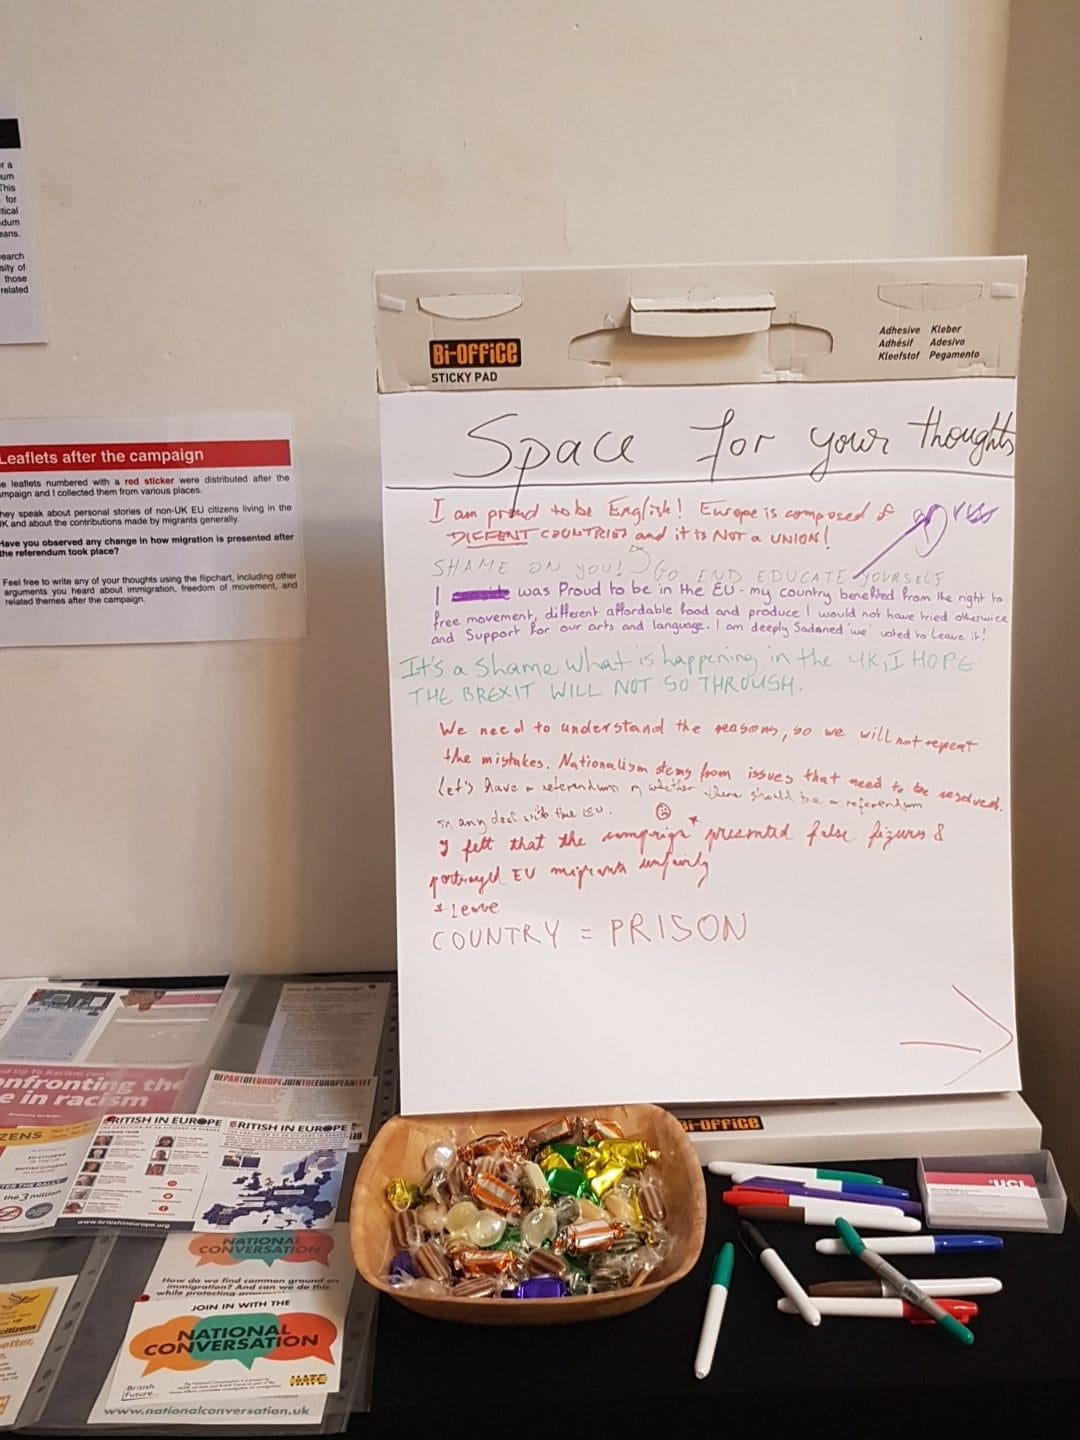 r a
um
This
for
tical
dum
eans.
earch
sity of
those
related
Leaflets after the campaign
e leaflets numbered with a red sticker were distributed after the
mpaign and I collected them from various places.
hey speak about personal stories of non-UK EU citizens living in the
K and about the contributions made by migrants generally.
Have you observed any change in how migration is presented after
the referendum took place?
Feel free to write any of your thoughts using the flipchart, including other
arguments you heard about immigration, freedom of movement, and
related themes after the campaign.
Bi-OFFiCE
STICKY PAD
Adhesive Kleber
Adhésif Adesivo
Kleefstof Pegamento
Space for your thoughts
I am proud to be English! Europe is composed of
DIFFENT COUNTRIES and it is NOT a UNION!
SHAME ON YOU! GO END EDUCATE YOURSELF
I was Proud to be in the EU - my country benefited from the right to
free movement, different affordable food and produce I would not have tried otherwice
and Support for our arts and language. I am deeply Sadened 'we' voted to leave it!
It's a shame what is happening in the UK, I HOPE
THE BREXIT WILL NOT GO THROUGH.
We need to understand the reasons, so we will not repeat
the mistakes. Nationalism stems from issues that need to be resolved.
Let's have a referendum on whether there should be a referendum
on any deal with the EU.
I felt that the campaign * presented false figures &
portrayed EU migrants unfairly
* Leave
COUNTRY = PRISON
Bi-OFFiCE
UCL
nd Up To Racism
onfronting the
e in racism
BEPARTOFEUROPEJOINTHEEUROPEANLEFT
ZENS
BRITISH IN EUROPE
BRITISH IN EUROPE
the 3 million
www.britishineurope.org
NATIONAL
CONVERSATION
How do we find common ground on
immigration? And can we do this
while protecting
JOIN IN WITH THE
NATIONAL
CONVERSATION
British
Future
HATE
www.nationalconversation.uk
citizens